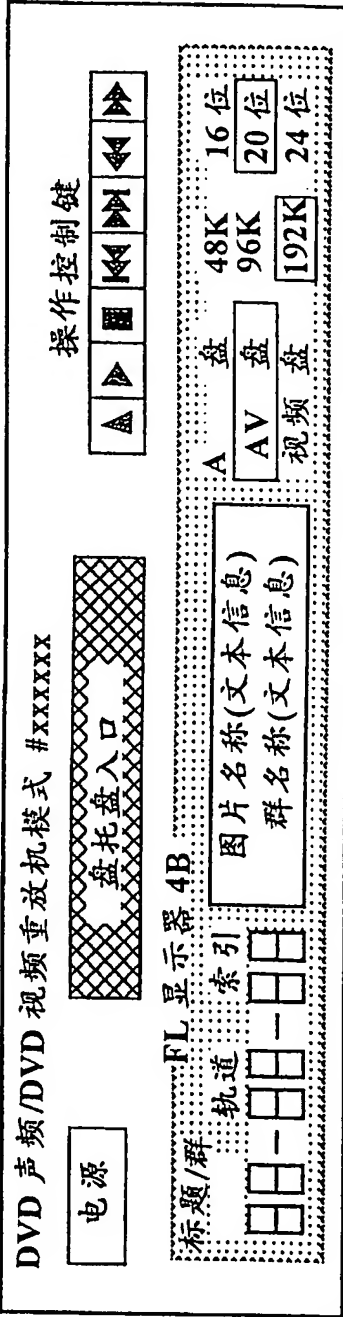 DVD 声频/DVD 视频重放机模式 #xxxxxx
操作控制键
电源
盘托盘入口
FL 显示器 4B
标题/群
轨道
索引
图片名称(文本信息)
群名称(文本信息)
A 盘
AV 盘
视频 盘
48K
96K
192K
16 位
20 位
24 位